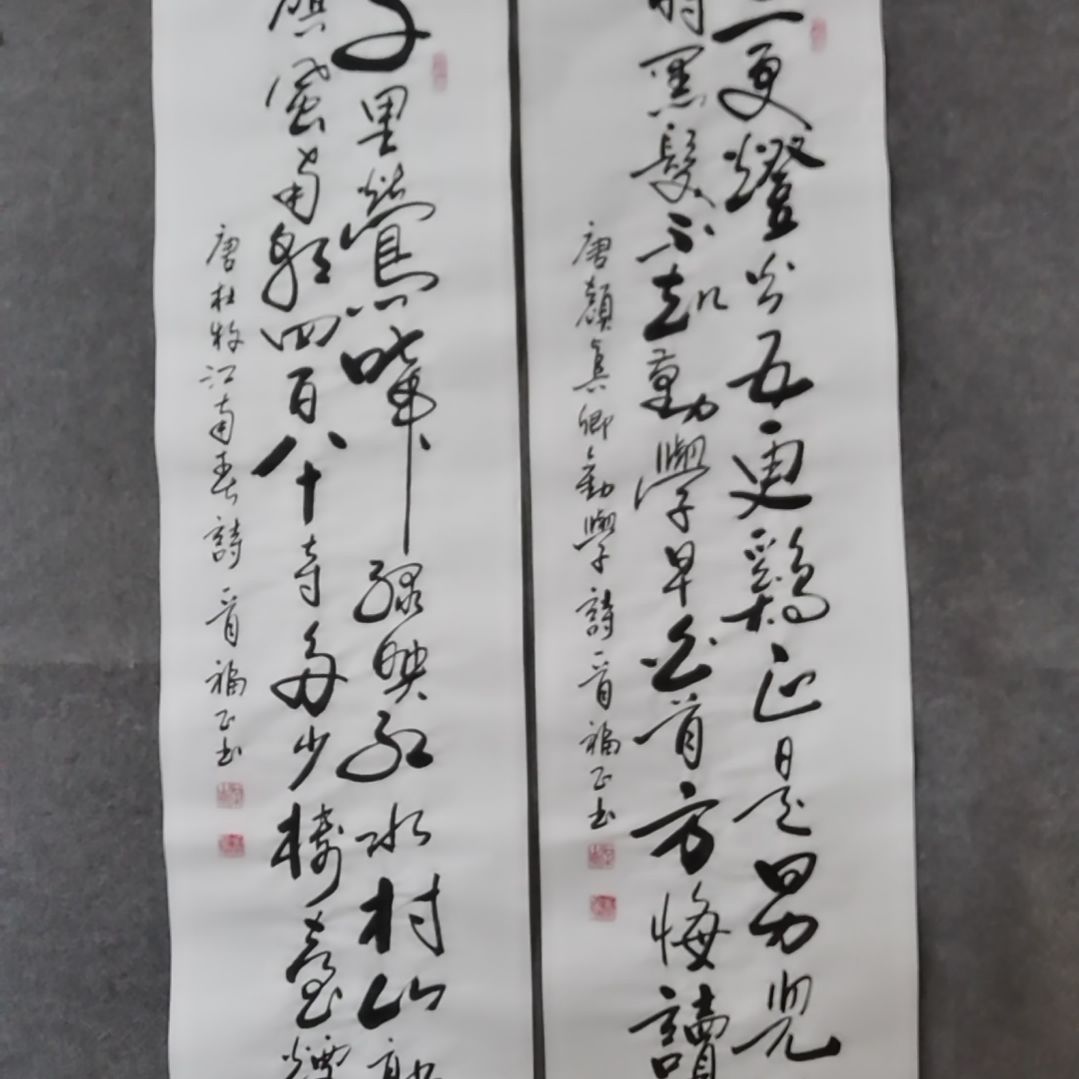 三更燈火五更鷄正是男兒
時黑髮不知勤學早白首方悔讀
唐顏真卿勸學詩 福正书
千里鶯啼綠映紅水村山郭
旗風南朝四百八十寺多少樓臺煙
唐杜牧江南春詩 福正书